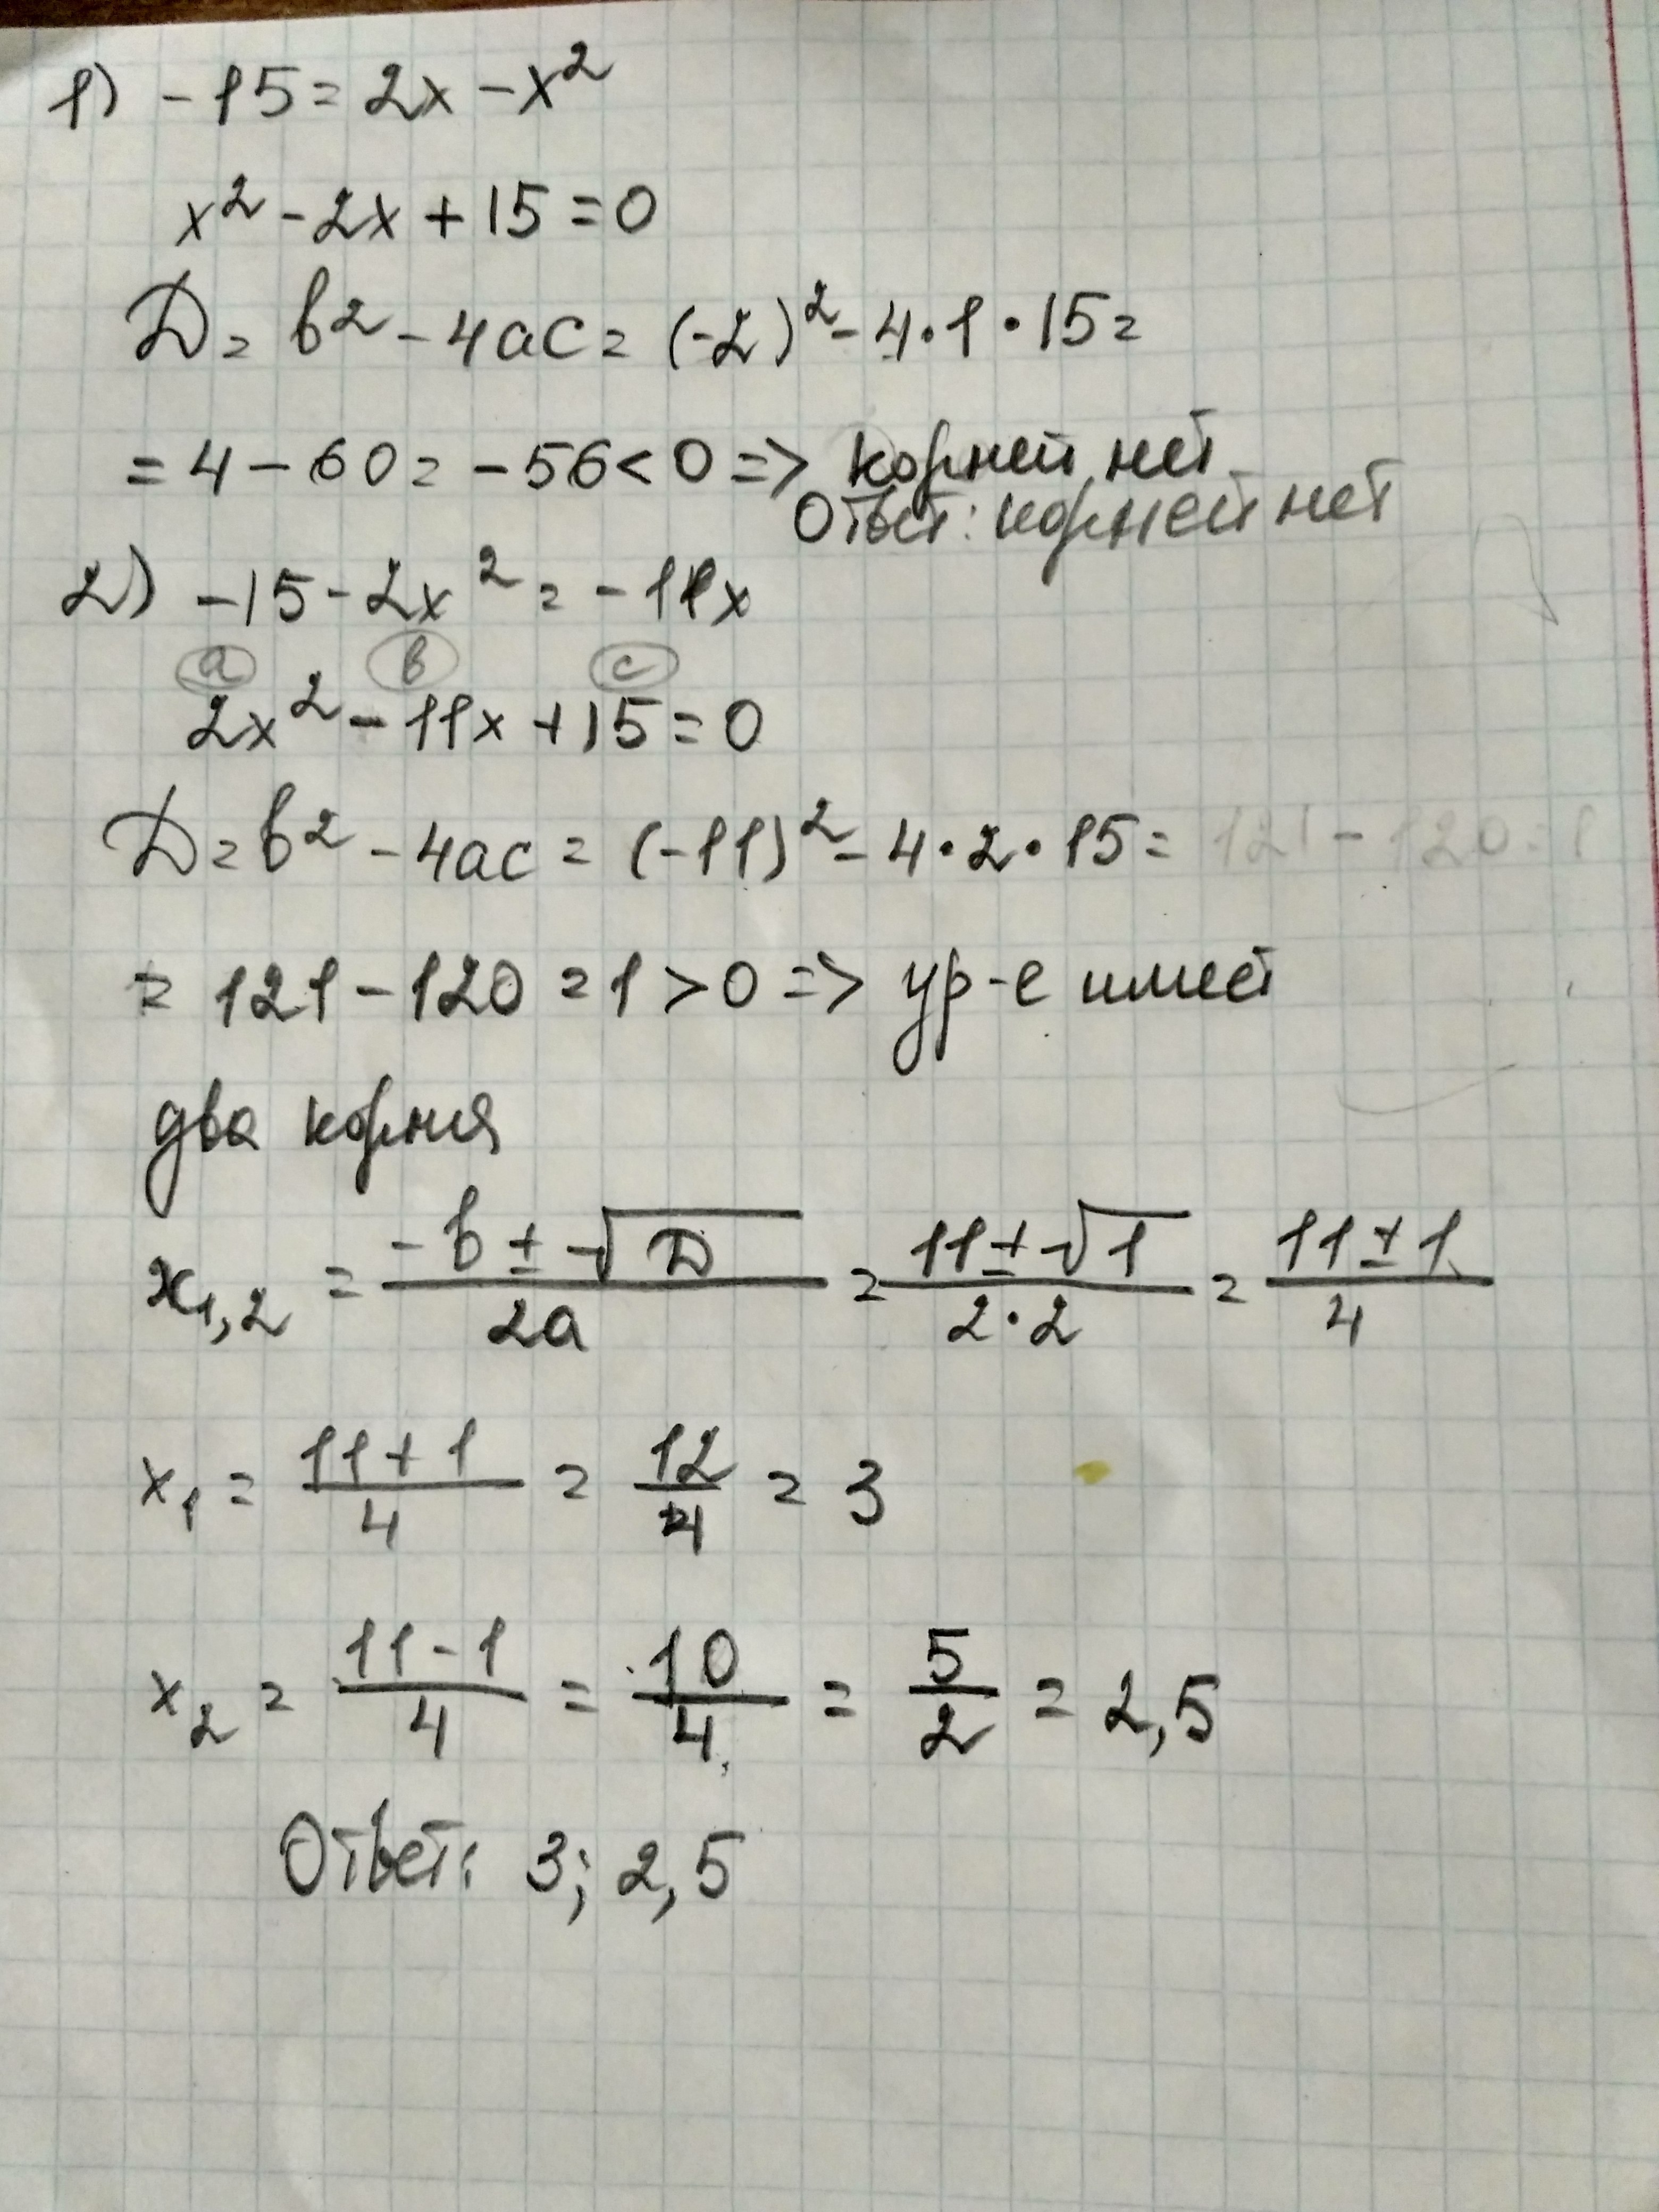 1) -15 = 2x - x²
x² - 2x + 15 = 0
D = b² - 4ac = (-2)² - 4·1·15 =
= 4 - 60 = -56 < 0 => корней нет
Ответ: корней нет
2) -15 - 2x² = -11x
a b c
2x² - 11x + 15 = 0
D = b² - 4ac = (-11)² - 4·2·15 = 121 - 120 =
= 121 - 120 = 1 > 0 => ур-е имеет
два корня
x₁,₂ = (-b ± √D)/(2a) = (11 ± √1)/(2·2) = (11 ± 1)/4
x₁ = (11 + 1)/4 = 12/4 = 3
x₂ = (11 - 1)/4 = 10/4 = 5/2 = 2,5
Ответ: 3; 2,5